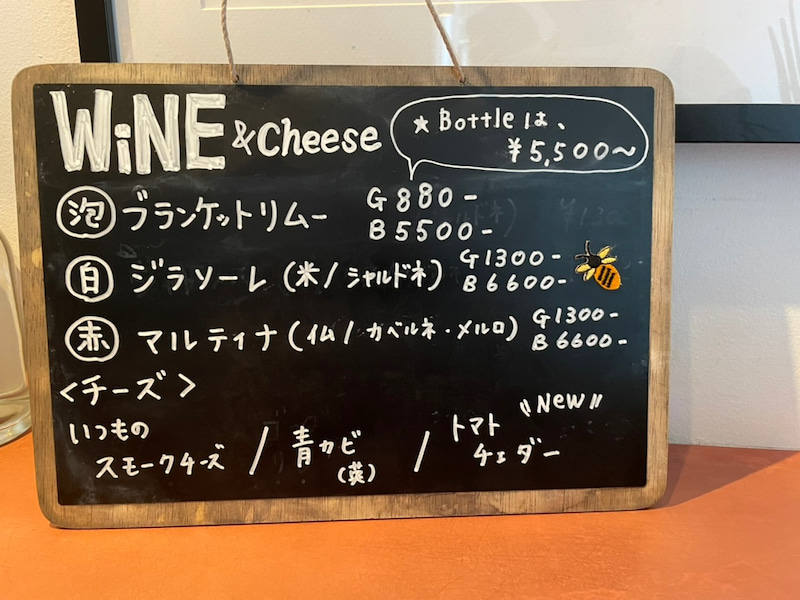 WiNE & Cheese
★ Bottle は、
¥5,500〜
泡 ブランケットリムー G 880-
B 5500-
白 ジラソーレ (米/シャルドネ) G1300-
B 6600-
赤 マルティナ (仏/カベルネ・メルロ) G1300-
B 6600-
<チーズ>
いつもの
スモークチーズ / 青カビ
(英) / トマト
チェダー
"New"